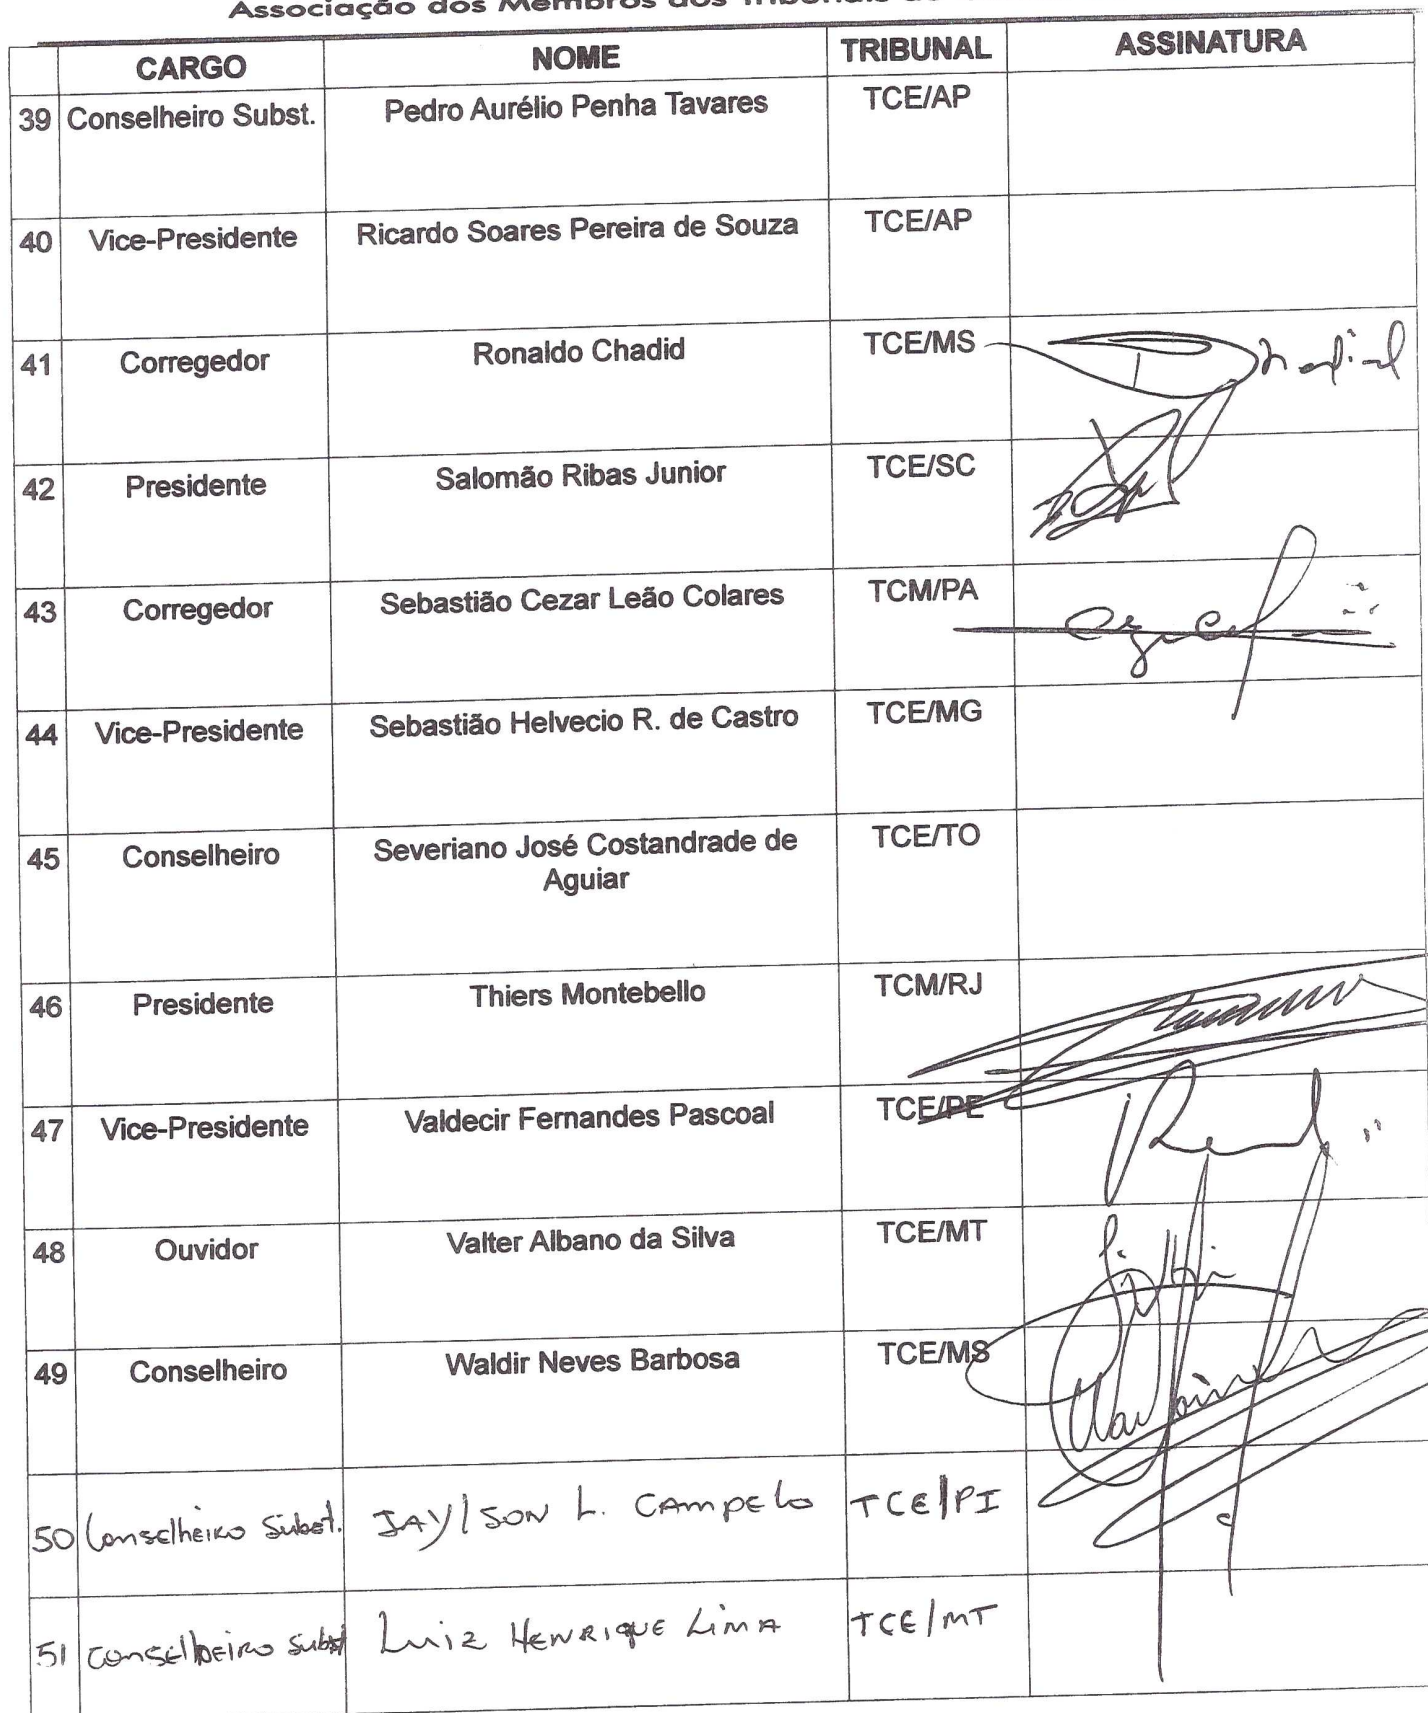 Associação dos Membros dos Tribunais de
CARGO NOME TRIBUNAL ASSINATURA
39 Conselheiro Subst. Pedro Aurélio Penha Tavares TCE/AP
40 Vice-Presidente Ricardo Soares Pereira de Souza TCE/AP
41 Corregedor Ronaldo Chadid TCE/MS
42 Presidente Salomão Ribas Junior TCE/SC
43 Corregedor Sebastião Cezar Leão Colares TCM/PA
44 Vice-Presidente Sebastião Helvecio R. de Castro TCE/MG
45 Conselheiro Severiano José Costandrade de
Aguiar TCE/TO
46 Presidente Thiers Montebello TCM/RJ
47 Vice-Presidente Valdecir Fernandes Pascoal TCE/PE
48 Ouvidor Valter Albano da Silva TCE/MT
49 Conselheiro Waldir Neves Barbosa TCE/MS
50 Conselheiro Subst. JAYLSON L. CAMPELO TCE/PI
51 Conselheiro Subst LUIZ HENRIQUE LIMA TCE/MT